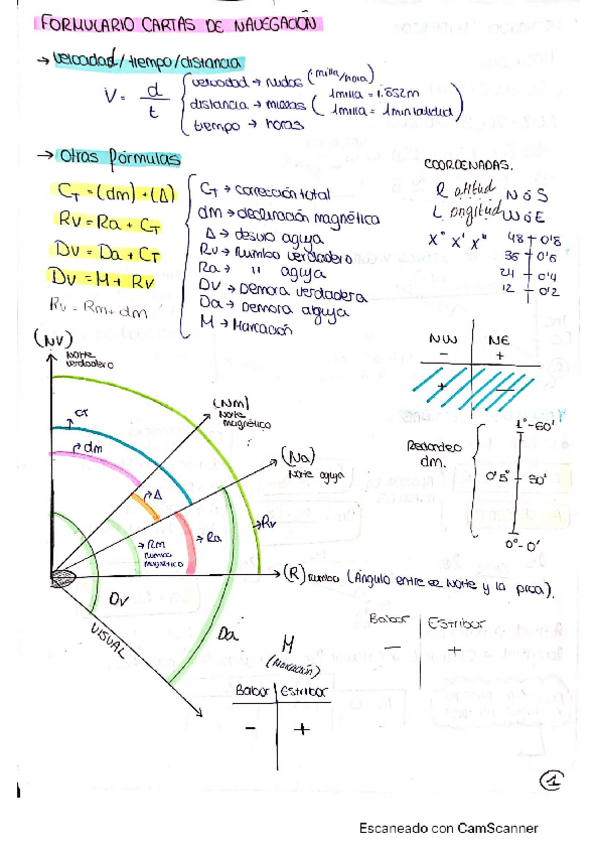 FORMULARIO CARTAS DE NAVEGACIÓN
→ velocidad/tiempo/distancia
V = d/t
velocidad → nudos (milla/hora)
distancia → millas (1 milla = 1.852m
1 milla = 1 min latitud)
tiempo → horas
→ Otras fórmulas
CT = (dm) + (Δ)
Rv = Ra + CT
Dv = Da + CT
Dv = M + Rv
Rv = Rm + dm
CT → corrección total
dm → declinación magnética
Δ → desvío aguja
Rv → Rumbo verdadero
Ra → " aguja
Dv → Demora verdadera
Da → Demora aguja
M → Marcación
COORDENADAS.
latitud N ó S
Longitud W ó E
X° X' X"
48 + 0'8
36 + 0'6
24 + 0'4
12 + 0'2
NW NE
- +
+ -
Redondeo dm.
1° - 60'
0'5° 30'
0° - 0'
(Nv)
Norte verdadero
(Nm)
Norte magnético
(Na)
Norte aguja
CT
dm
Δ
Rm
Rumbo magnético
Ra
Rv
(R) Rumbo (Ángulo entre el Norte y la proa).
Dv
Da
VISUAL
M
(Marcación)
Babor Estribor
- +
Babor Estribor
- +
1
Escaneado con CamScanner